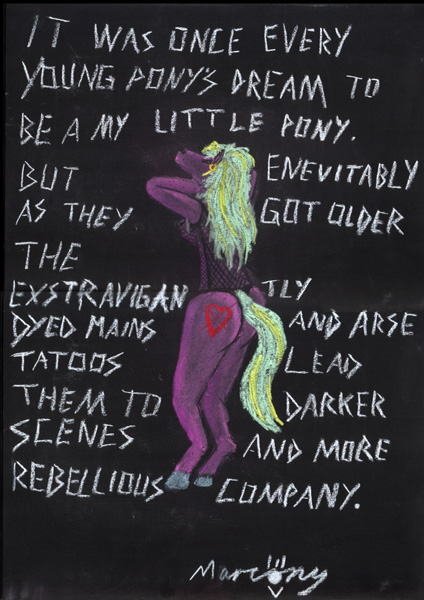 IT WAS ONCE EVERY
YOUNG PONY'S DREAM TO
BE A MY LITTLE PONY.
BUT ENEVITABLY
AS THEY GOT OLDER
THE
EXSTRAVIGANTLY
DYED MAINS AND ARSE
TATOOS LEAD
THEM TO DARKER
SCENES AND MORE
REBELLIOUS COMPANY.
Marcony